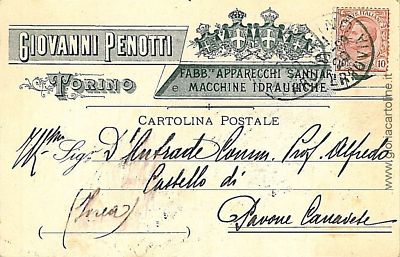 GIOVANNI PENOTTI
TORINO
FABB. APPARECCHI SANITAR
e MACCHINE IDRAULICHE
10
CARTOLINA POSTALE
Ill.mo Sig. D'Andrade Comm. Prof. Alfredo
Castello di
(Ivrea) Pavone Canavese
www.gioiacartoline.it